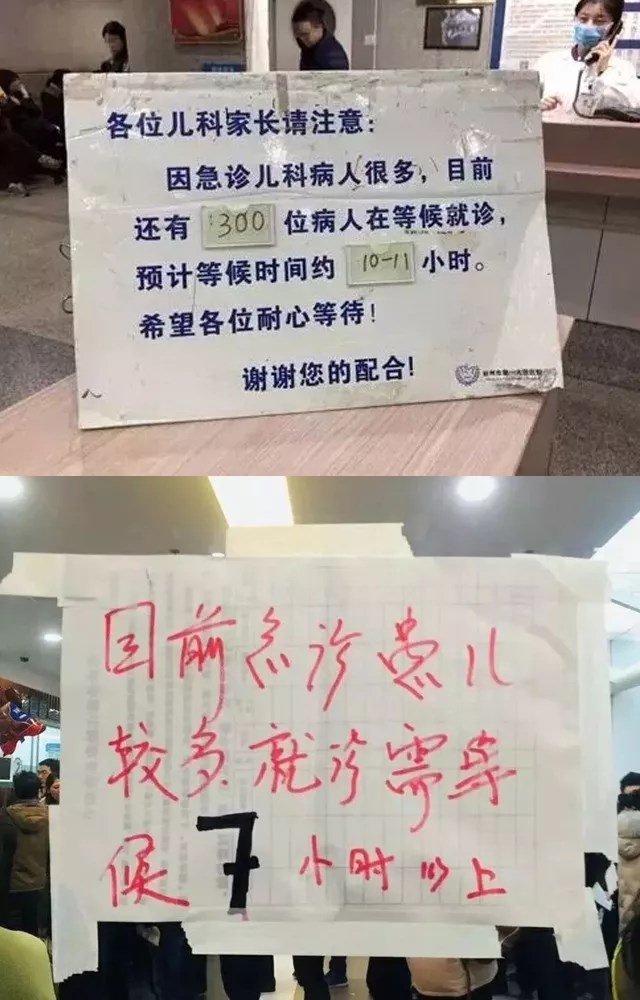 各位儿科家长请注意:
因急诊儿科病人很多，目前
还有 300 位病人在等候就诊，
预计等候时间约 10-11 小时。
希望各位耐心等待!
谢谢您的配合!
目前急诊患儿
较多就诊需等
候 7 小时以上